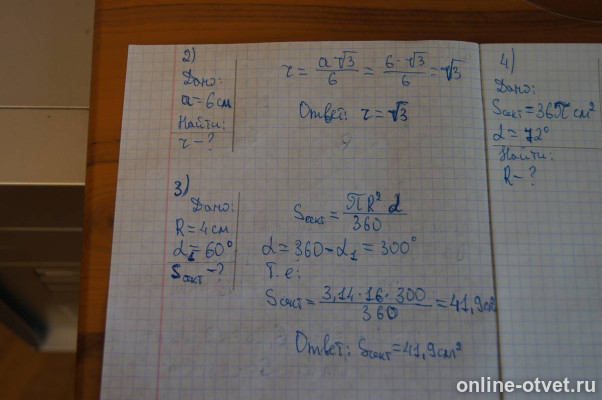 2)
Дано:
a = 6 см
Найти:
r - ?
r = a·√3/6 = 6·√3/6 = √3
Ответ: r = √3
3)
Дано:
R = 4 см
α₁ = 60°
Sсект - ?
Sсект = πR² α/360
α = 360 - α₁ = 300°
Т.е:
Sсект = 3,14·16·300/360 = 41,9 см²
Ответ: Sсект = 41,9 см²
4)
Дано:
Sсект = 36π см²
α = 72°
Найти:
R - ?
online-otvet.ru